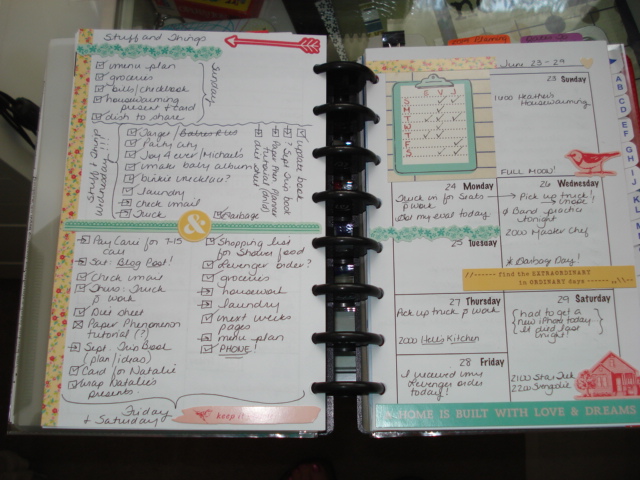 Stuff and Things
menu plan
groceries
bills/checkbook
housewarming
present & card
dish to share
Sunday
Stuff & Things
Wednesday!!!
Target /
Party City
Joy 4 ever/Michael's
make baby album
buckle necklace?
laundry
check email
Truck
Garbage
update book
? Sept Join book
Paper Phen Planner
tutorial
diet sheet
&
Pay Cari for 7-15
Sat: Blog Post!
Check email
Thurs: Truck
@ work
Diet sheet
Paper Phenomenon
tutorial (?)
Sept. Join book
(plan/ideas)
Card for Natalie
Wrap Natalie's
presents
Shopping list
for Shower food
Scavenger order?
groceries
housework
laundry
next weeks
pages
menu plan
PHONE!
Friday
& Saturday
keep it
June 23 - 29
E V J
S
M
T
W
T
F
S
23 Sunday
1400 Heather's
Housewarming
FULL MOON!
24 Monday
Truck in for Seats
@ work
Del my east today
25 Tuesday
26 Wednesday
Pick up truck,
nope
Band practice
tonight
2000 Master Chef
* Garbage Day!
//------ find the EXTRAORDINARY
in ORDINARY days
27 Thursday
Pick up truck @ work
2000 Hell's Kitchen
28 Friday
I received my
Scavenger order
today!
29 Saturday
had to get a
new iPhone today
I died last
night!
2100 Star Trek
2200
A HOME IS BUILT WITH LOVE & DREAMS
A
B
C
D
E
F
G